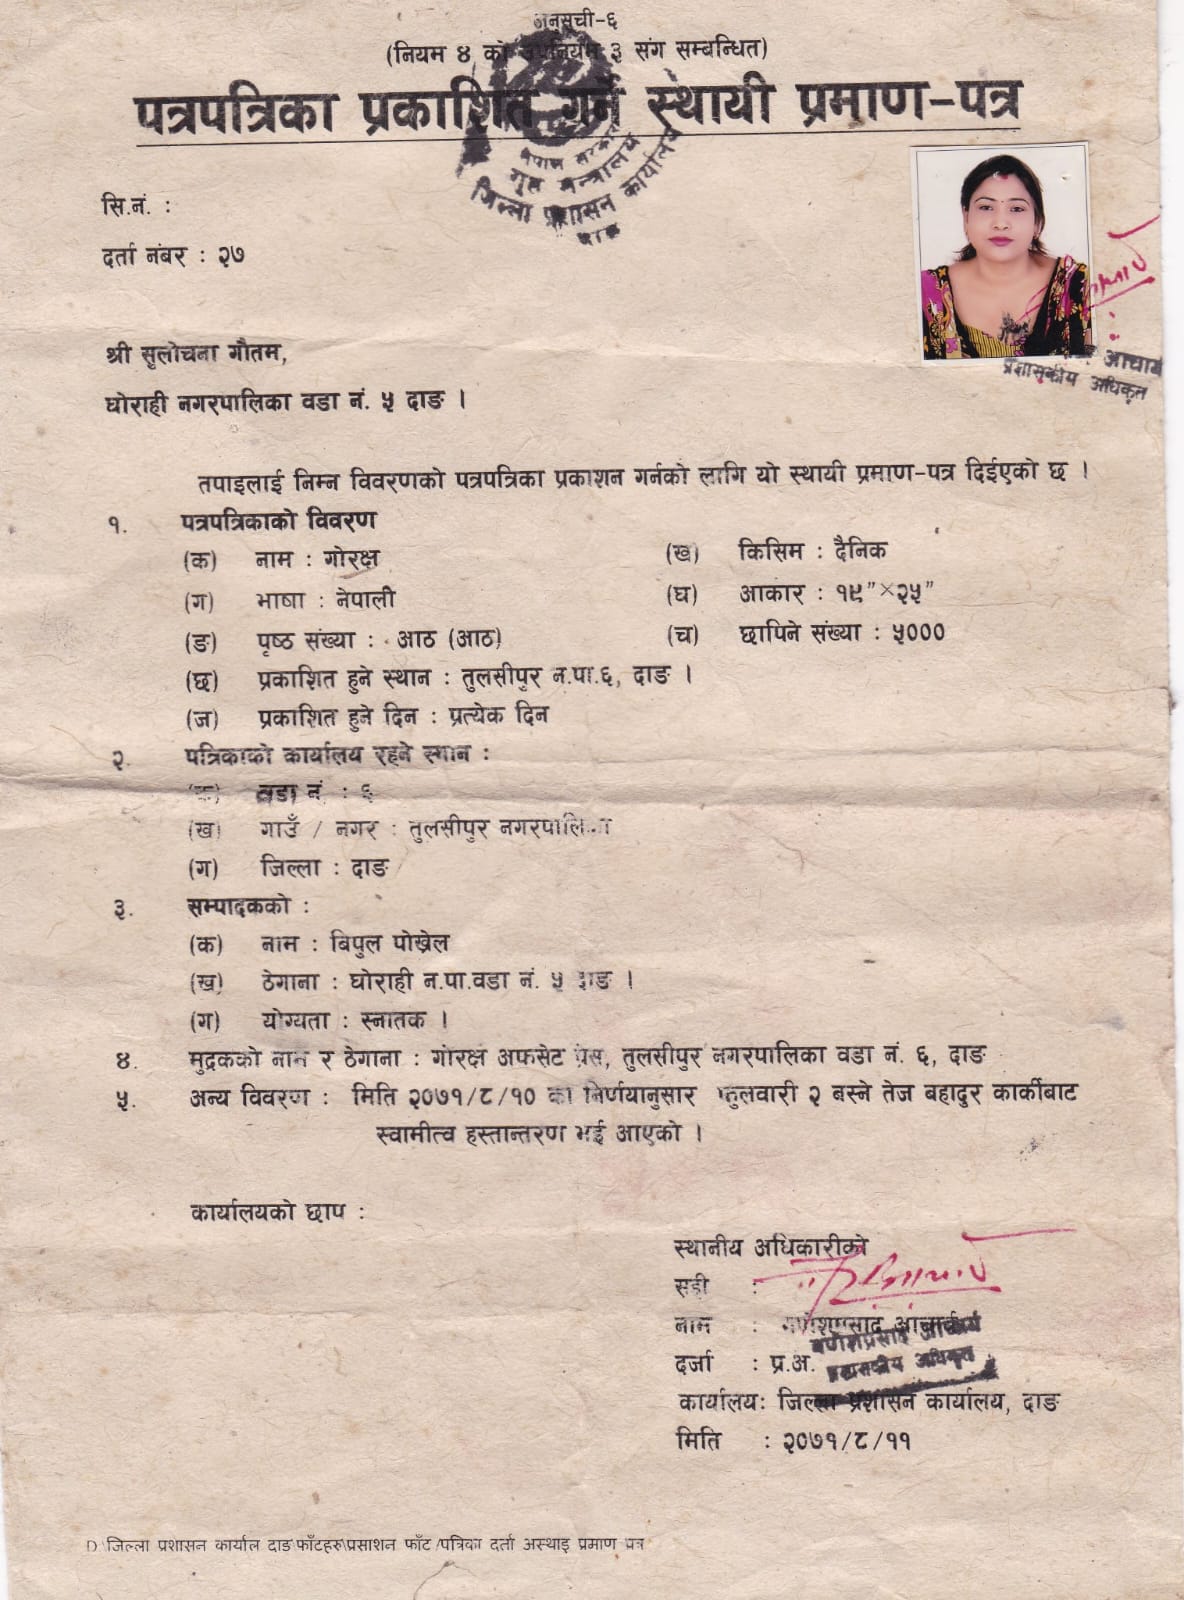 अनुसूची-६
(नियम ४ को उपनियम ३ संग सम्बन्धित)
पत्रपत्रिका प्रकाशित गर्ने स्थायी प्रमाण-पत्र
नेपाल सरकार
गृह मन्त्रालय
जिल्ला प्रशासन कार्यालय
दाङ
सि.नं. :
दर्ता नंबर : २७
आचार्य
प्रशासकीय अधिकृत
श्री सुलोचना गौतम,
घोराही नगरपालिका वडा नं. ५ दाङ ।
तपाइलाई निम्न विवरणको पत्रपत्रिका प्रकाशन गर्नको लागि यो स्थायी प्रमाण-पत्र दिईएको छ ।
१. पत्रपत्रिकाको विवरण
(क) नाम : गोरक्ष (ख) किसिम : दैनिक
(ग) भाषा : नेपाली (घ) आकार : १९"×२५"
(ङ) पृष्ठ संख्या : आठ (आठ) (च) छापिने संख्या : ५०००
(छ) प्रकाशित हुने स्थान : तुलसीपुर न.पा.६, दाङ ।
(ज) प्रकाशित हुने दिन : प्रत्येक दिन
२. पत्रिकाको कार्यालय रहने स्थान :
(क) वडा नं : ६
(ख) गाउँ / नगर : तुलसीपुर नगरपालिका
(ग) जिल्ला : दाङ
३. सम्पादकको :
(क) नाम : बिपुल पोख्रेल
(ख) ठेगाना : घोराही न.पा.वडा नं. ५ दाङ ।
(ग) योग्यता : स्नातक ।
४. मुद्रकको नाम र ठेगाना : गोरक्ष अफसेट प्रेस, तुलसीपुर नगरपालिका वडा नं. ६, दाङ
५. अन्य विवरण : मिति २०७१/८/१० का निर्णयानुसार फुलवारी २ बस्ने तेज बहादुर कार्कीबाट
स्वामीत्व हस्तान्तरण भई आएको ।
कार्यालयको छाप :
स्थानीय अधिकारीको
सही :
नाम : गणेशप्रसाद आचार्य
गणेशप्रसाद आचार्य
दर्जा : प्र.अ.
प्रशासकीय अधिकृत
कार्यालय: जिल्ला प्रशासन कार्यालय, दाङ
मिति : २०७१/८/११
D\जिल्ला प्रशासन कार्याल दाङ\फाँटहरु\प्रसाशन फाँट /पत्रिका दर्ता अस्थाइ प्रमाण पत्र